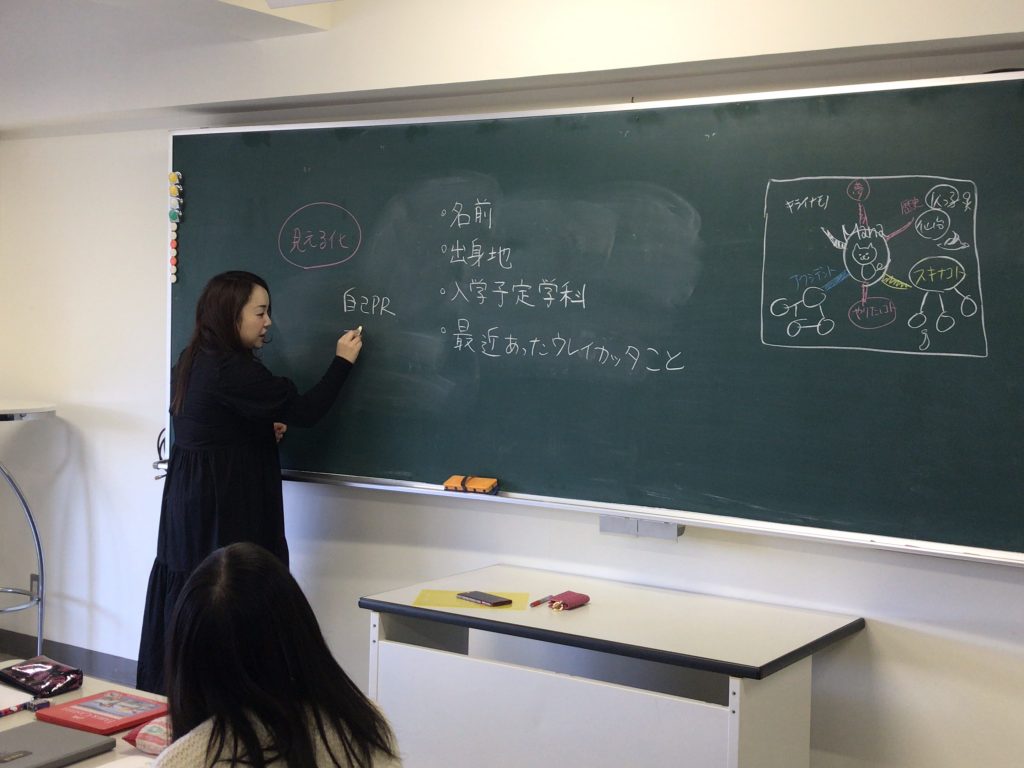 見える化
自己PR
・名前
・出身地
・入学予定学科
・最近あったウレイカッタこと
キライナモノ
夢
歴史
Mana
仙台
アクシデント
スキナコト
やりたいコト